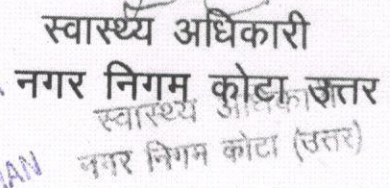 स्वास्थ्य अधिकारी
नगर निगम कोटा उत्तर
स्वास्थ्य अधिकारी
नगर निगम कोटा (उत्तर)
AN